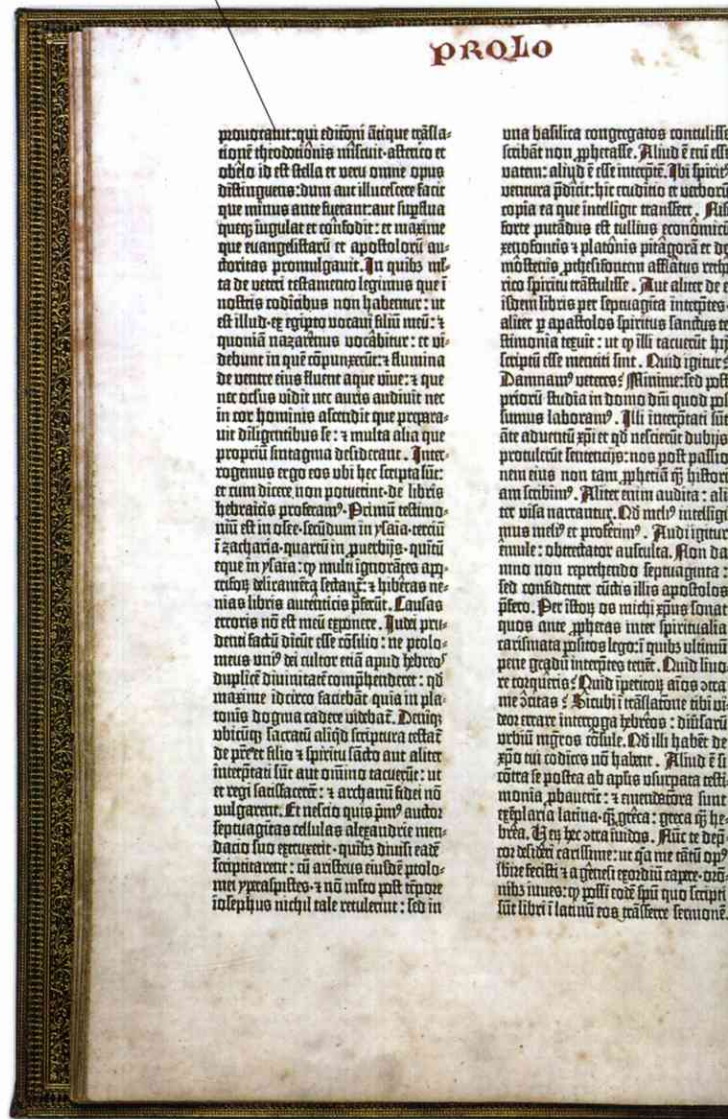 PROLO
prouocauit: qui editōni ātique trāsla-
tionē theodotionis miscuit· asterico et
obelo id est stella et veru omne opus
distinguens: dum aut illucescere facit
que minus ante fuerant: aut supflua
queqʒ iugulat et confodit: et maxime
que euangelistarū et apostolorū au-
ctoritas promulgauit. In quibʒ mł-
ta de veteri testamento legimus que ī
nostris codicibus non habentur: ut
est illud· ex egipto vocaui filiū meū: ⁊
quoniā nazarenus vocabitur: et vi-
debunt in quē cōpunxerūt: ⁊ flumina
de ventre eius fluent aque viue: ⁊ que
nec oculus vidit nec auris audiuit nec
in cor hominis ascendit que prepara-
uit diligentibus se: ⁊ multa alia que
propriū sintagma desiderant. Inter-
rogemus ergo eos ubi hec scripta sūt:
et cum dicere non potuerint· de libris
hebraicis proferamꝰ. Primū testimo-
niū est in osee· secūdum in ysaia· terciū
ī zacharia· quartū in puerbijs· quītū
eque in ysaia: qʒ multi ignorātes apo-
crifoꝝ deliramēta sectāt: ⁊ hiberas ne-
nias libris autenticis pferūt. Causas
erroris nō est meū exponere. Iudei pru-
denti factū dicūt esse cōsilio: ne ptolo-
meus vniꝰ dei cultor etiā apud hebreos
duplicē diuinitatē comphenderet: qđ
maxime idcirco faciebāt quia in pla-
tonis dogma cadere videbat. Deniqʒ
vbicūqʒ sacratū aliqd scriptura testat
de pre et filio ⁊ spiritu sācto aut aliter
interptati sūt aut omnino tacuerūt: ut
et regi satisfacerēt: ⁊ archanū fidei nō
vulgarent. Et nescio quis pmꝰ auctor
septuagītas cellulas alexandrie men-
dacio suo extruxerit· quibʒ diuisi eadē
scriptitarent: cū aristeus eiusdē ptolo-
mei yperaspistes· ⁊ nō mlto post tēpore
iosephus nichil tale retulerint: sed in
una basilica congregatos contulisse
scribāt non pphetasse. Aliud ē enī esse
vatem: aliud ē esse interptē. Ibi spiritꝰ
ventura pdicit: hic eruditio et verborū
copia ea que intelligit transfert. Nisi
forte putādus est tullius economicū
xenofontis ⁊ platonis pitagorā et de-
mostenis pthesifontem afflatus retho-
rico spiritu trāstulisse. Aut aliter de e-
isdem libris per septuagīta interptes·
aliter p apostolos spiritus sanctus te-
stimonia texuit: ut qʒ illi tacuerūt hij
scriptū esse mentiti sint. Quid igitur?
Damnamꝰ veteres? Minime: sed post
priorū studia in domo dnī quod pos-
sumus laboramꝰ. Illi interptati sūt
āte aduentū xpi et qđ nescierūt dubijs
protulerūt sentencijs: nos post passio-
nem eius non tam pphetiā qʒ histori-
am scribimꝰ. Aliter enim audita: ali-
ter visa narrantur. Qđ meliꝰ intelligi-
mus meliꝰ et proferimꝰ. Audi igitur
emule: obtrectator ausculta. Non da-
mno non reprehendo septuaginta:
sed confidenter cūctis illis apostolos
pfero. Per istoꝝ os michi xpus sonat
quos ante pphetas inter spiritualia
carismata positos lego: ī quibʒ ultimū
pene gradū interptes tenēt. Quid liuo-
re torqueris? Quid īperitoꝝ aīos ɔtra
me ɔcitas? Sicubi ī trāslatōne tibi vi-
deor errare interroga hebreos: diūsarū
vrbiū mgros cōsule. Qđ illi habēt de
xpo tui codices nō habent. Aliud ē si
cōtra se postea ab aplis vsurpata testi-
monia pbauerūt: ⁊ emendatiora sunt
exēplaria latina qʒ greca: greca qʒ he-
brea. Veꝝ hec ɔtra īuidos. Nūc te dep-
cor desideri carissime: ut qa me tātū opꝰ
sbire fecisti ⁊ a genesi exordiū capere· orō-
nibʒ iuues: qʒ possī eodē spū quo scripti
sūt libri ī latinū eos trāsferre sermonē.